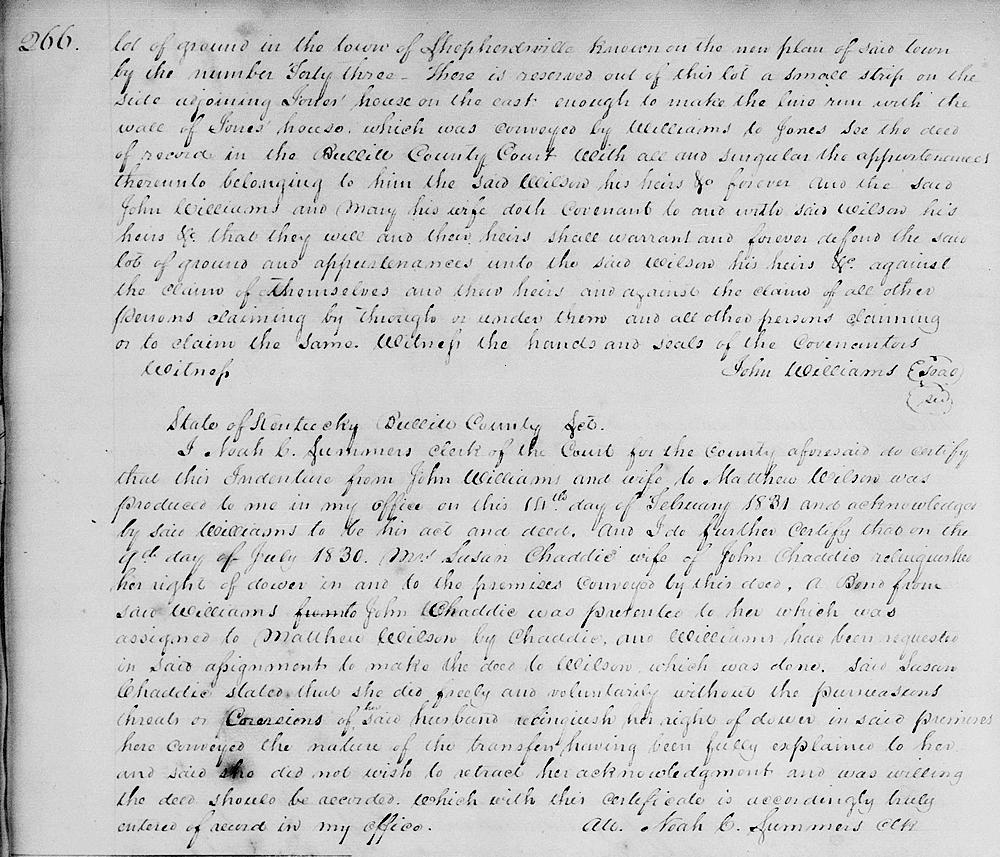 266. lot of ground in the town of Shepherdsville known on the new plan of said town
by the number Forty three - There is reserved out of this lot a small strip on the
side adjoining Jones' house on the east enough to make the line run with the
wall of Jones' house. which was conveyed by Williams to Jones see the deed
of record in the Bullitt County Court With all and singular the appurtenances
thereunto belonging to him the said Wilson his heirs &c forever And the said
John Williams and Mary his wife doth Covenant to and with said Wilson his
heirs &c that they will and their heirs shall warrant and forever defend the said
lot of ground and appurtenances unto the said Wilson his heirs &c. against
the claim of themselves and their heirs and against the claim of all other
persons claiming by through or under them and all other persons claiming
or to claim the same. Witness the hands and seals of the Covenantors
Witness John Williams (Seal)
(Seal)
State of Kentucky Bullitt County Sct.
I Noah C. Summers clerk of the Court for the County aforesaid do certify
that this Indenture from John Williams and wife to Matthew Wilson was
produced to me in my office on this 14th day of February 1831 and acknowledged
by said Williams to be his act and deed. And I do further certify that on the
day of July 1830. Mrs Susan Chaddic wife of John Chaddic relinquished
her right of dower in and to the premises conveyed by this deed, A Bond from
said Williams from to John Chaddic was presented to her which was
assigned to Matthew Wilson by Chaddic, and Williams had been requested
in said assignment to make the deed to Wilson, which was done. Said Susan
Chaddic stated that she did freely and voluntarily without the
threats or Coersions of her said husband relinquish her right of dower in said premises
here conveyed the nature of the transfer having been fully explained to her
and said she did not wish to retract her acknowledgment and was willing
the deed should be recorded. Which with this certificate is accordingly truly
entered of record in my office. Att. Noah C. Summers Clk